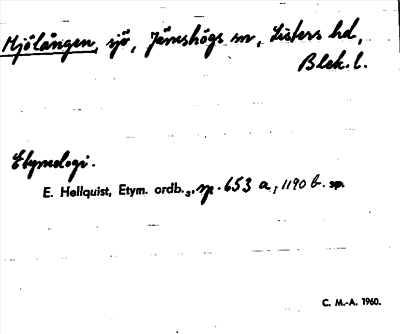 Mjölången, sjö, Jämshögs sn, Listers hd,
Blek. l.
Etymologi.
E. Hellquist, Etym. ordb.3, sp. 653 a, 1190 b. sp.
C. M.-A. 1960.